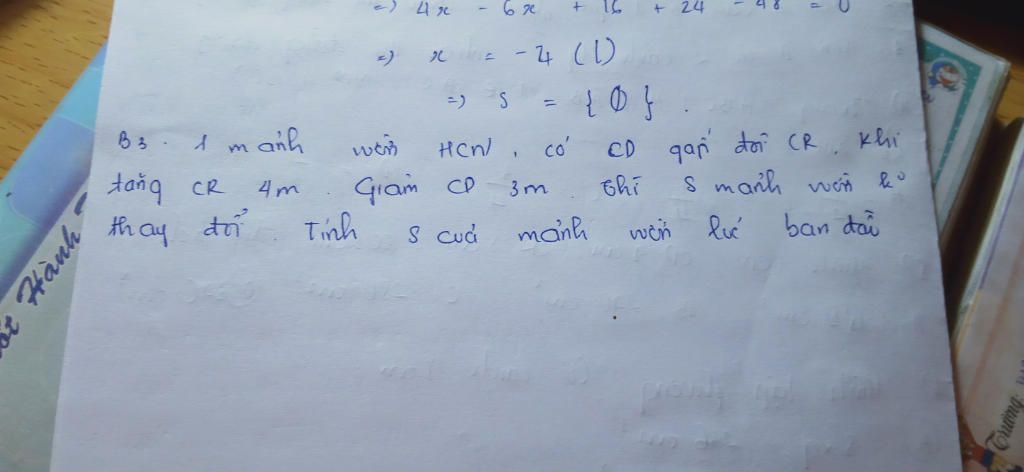 =) 4x - 6x + 16 + 24 - 48 = 0
=) x = -4 (l)
=) S = { ∅ } .
B3 . 1 mảnh vườn HCN , có CD gấp đôi CR . Khi
tăng CR 4m . Giảm CD 3m . Thì S mảnh vườn ko
thay đổi . Tính S của mảnh vườn lúc ban đầu
Hành
Trường: